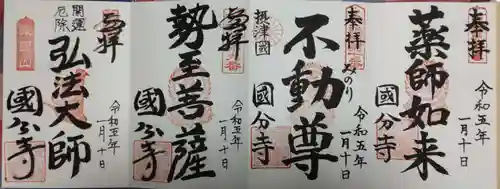 奉拝
薬師如来
國分寺
令和五年
一月十日
奉拝
摂津國
不動尊
みのり
國分寺
令和五年
一月十日
奉拝
勢至菩薩
國分寺
令和五年
一月十日
奉拝
開運
厄除
弘法大師
國分寺
令和五年
一月十日